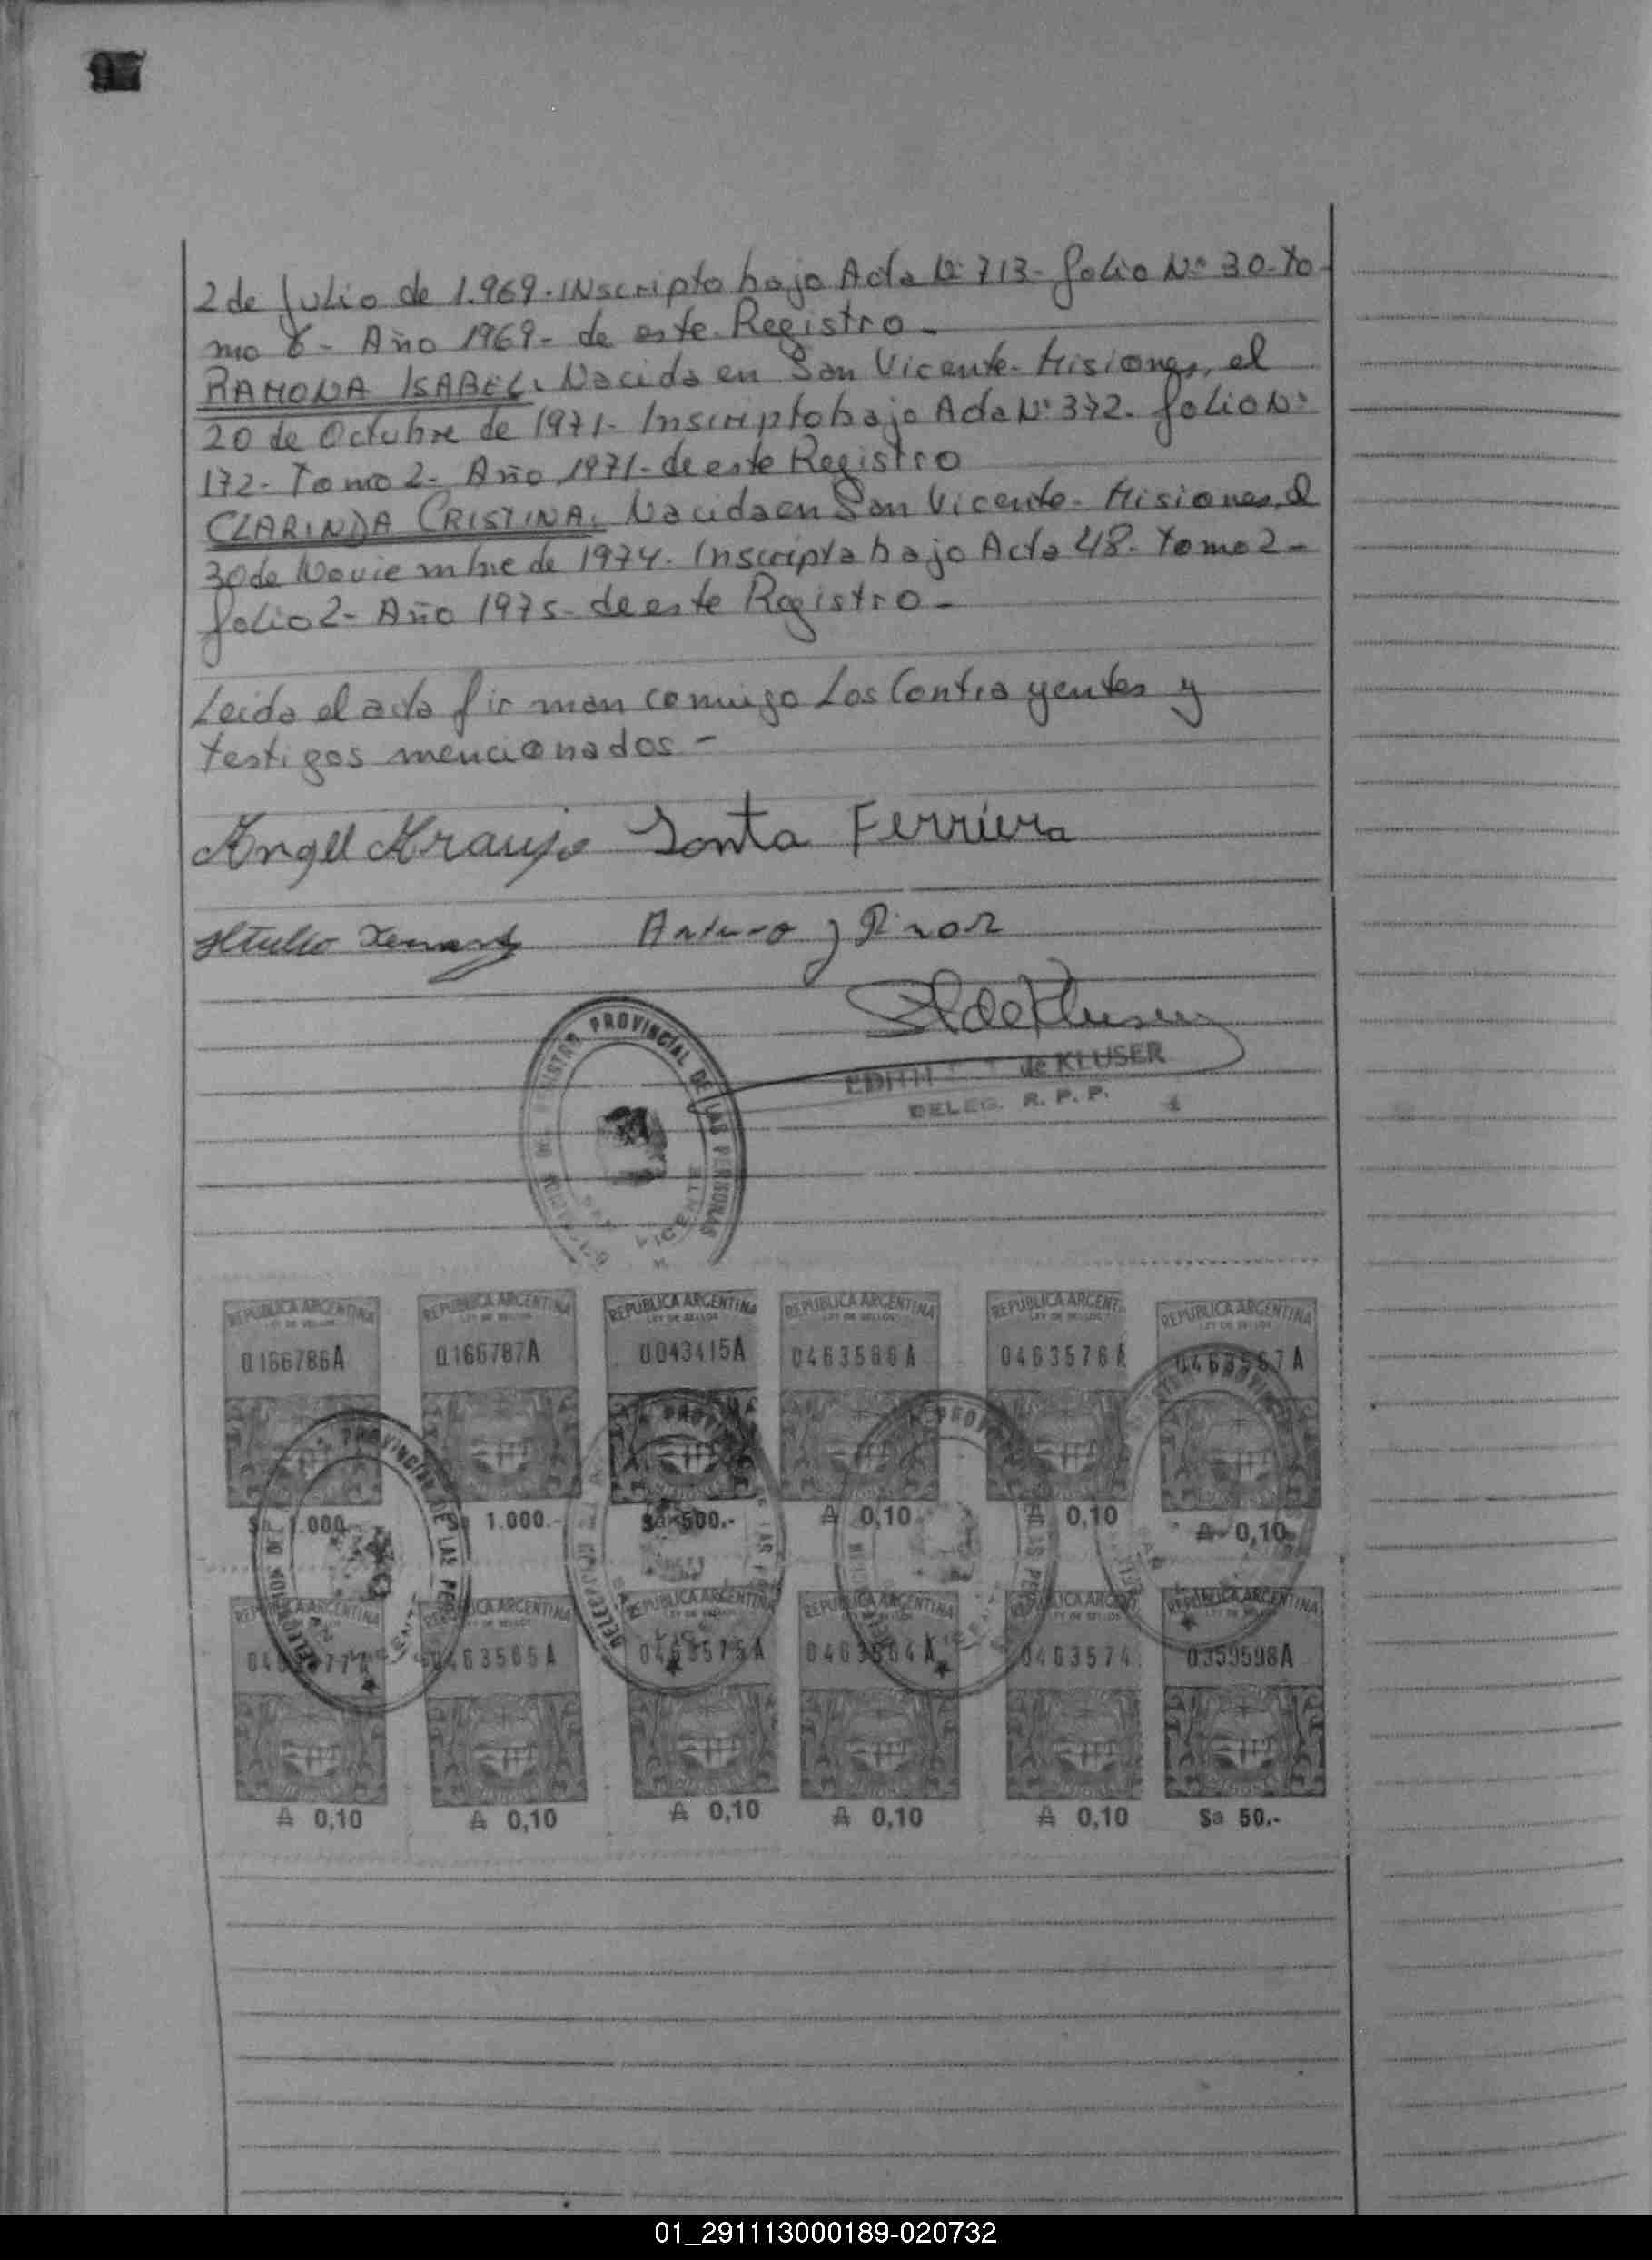 2 de Julio de 1.969. Inscripto bajo Acta Nº 713- folio Nº 30- To-
mo 6 - Año 1969- de este Registro-
RAMONA ISABEL. Nacida en San Vicente- Misiones, el
20 de Octubre de 1971- Inscripto bajo Acta Nº 372. folio Nº
172- Tomo 2- Año 1971- de este Registro
CLARINDA CRISTINA. Nacida en San Vicente- Misiones, el
30 de Noviembre de 1974. Inscripta bajo Acta 48. Tomo 2-
folio 2- Año 1975- de este Registro-
Leida el acta firman comigo Los Contrayentes y
testigos mencionados-
Angel Araujo Sonta Ferriera
Arturo J
REGISTRO PROVINCIAL DE LAS PERSONAS
VICENTE
EDITH de KLUSER
DELEG. R. P. P.
REPUBLICA ARGENTINA REPUBLICA ARGENTINA REPUBLICA ARGENTINA REPUBLICA ARGENTINA REPUBLICA ARGENT REPUBLICA ARGENTINA
LEY DE SELLOS LEY DE SELLOS LEY DE SELLOS LEY DE SELLOS LEY DE SELLOS LEY DE SELLOS
0166786A 0166787A 0043415A 0463566A 0463576A 0463567A
1.000 1.000.- $a 500.- ₳ 0,10 ₳ 0,10 ₳ 0,10
REPUBLICA ARGENTINA REPUBLICA ARGENTINA REPUBLICA ARGENTINA REPUBLICA ARGENTINA REPUBLICA ARGENTINA REPUBLICA ARGENTINA
0463565A 0463575A 0463564A 0463574 0359598A
₳ 0,10 ₳ 0,10 ₳ 0,10 ₳ 0,10 ₳ 0,10 $a 50.-
01_291113000189-020732